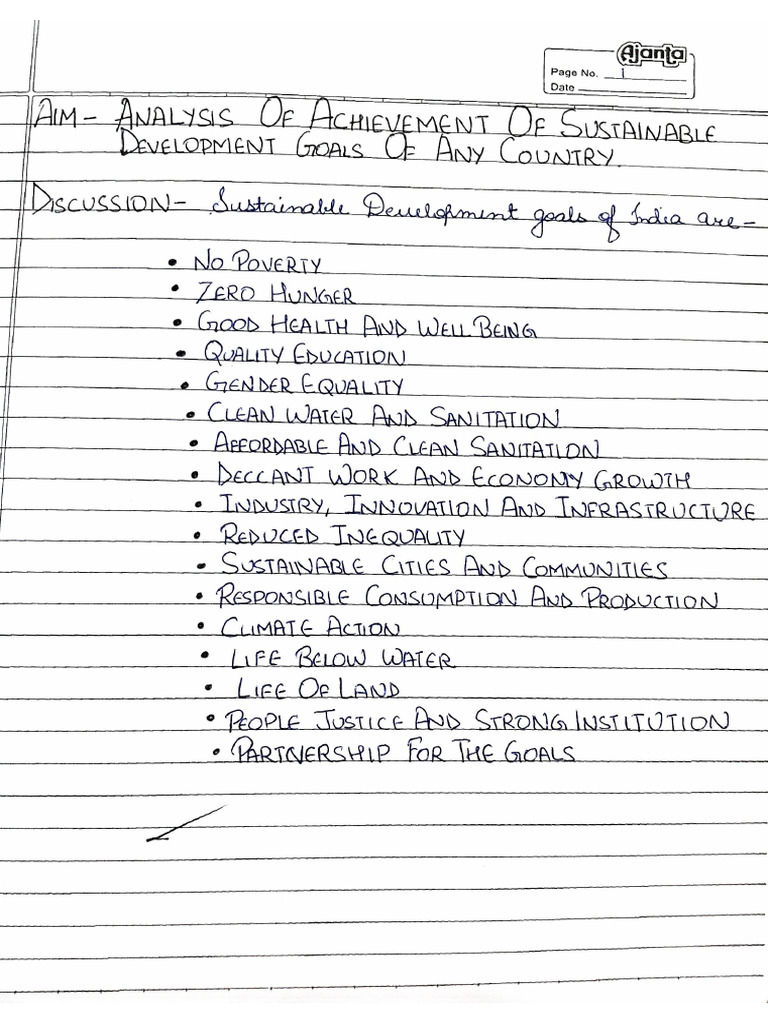 Ajanta
Page No. 1
Date
AIM - ANALYSIS OF ACHIEVEMENT OF SUSTAINABLE
DEVELOPMENT GOALS OF ANY COUNTRY.
DISCUSSION - Sustainable Development goals of India are -
• NO POVERTY
• ZERO HUNGER
• GOOD HEALTH AND WELL BEING
• QUALITY EDUCATION
• GENDER EQUALITY
• CLEAN WATER AND SANITATION
• AFFORDABLE AND CLEAN SANITATION
• DECCANT WORK AND ECONOMY GROWTH
• INDUSTRY, INNOVATION AND INFRASTRUCTURE
• REDUCED INEQUALITY
• SUSTAINABLE CITIES AND COMMUNITIES
• RESPONSIBLE CONSUMPTION AND PRODUCTION
• CLIMATE ACTION
• LIFE BELOW WATER
• LIFE OF LAND
• PEOPLE JUSTICE AND STRONG INSTITUTION
• PARTNERSHIP FOR THE GOALS